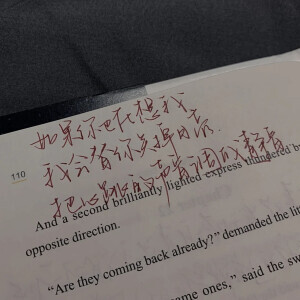 如果你也在想我
我会 你 掉日落
把心跳的声音调成静音
110
And a second brilliantly lighted express thundered by
opposite direction.
“Are they coming back already?” demanded the
ones,” said the